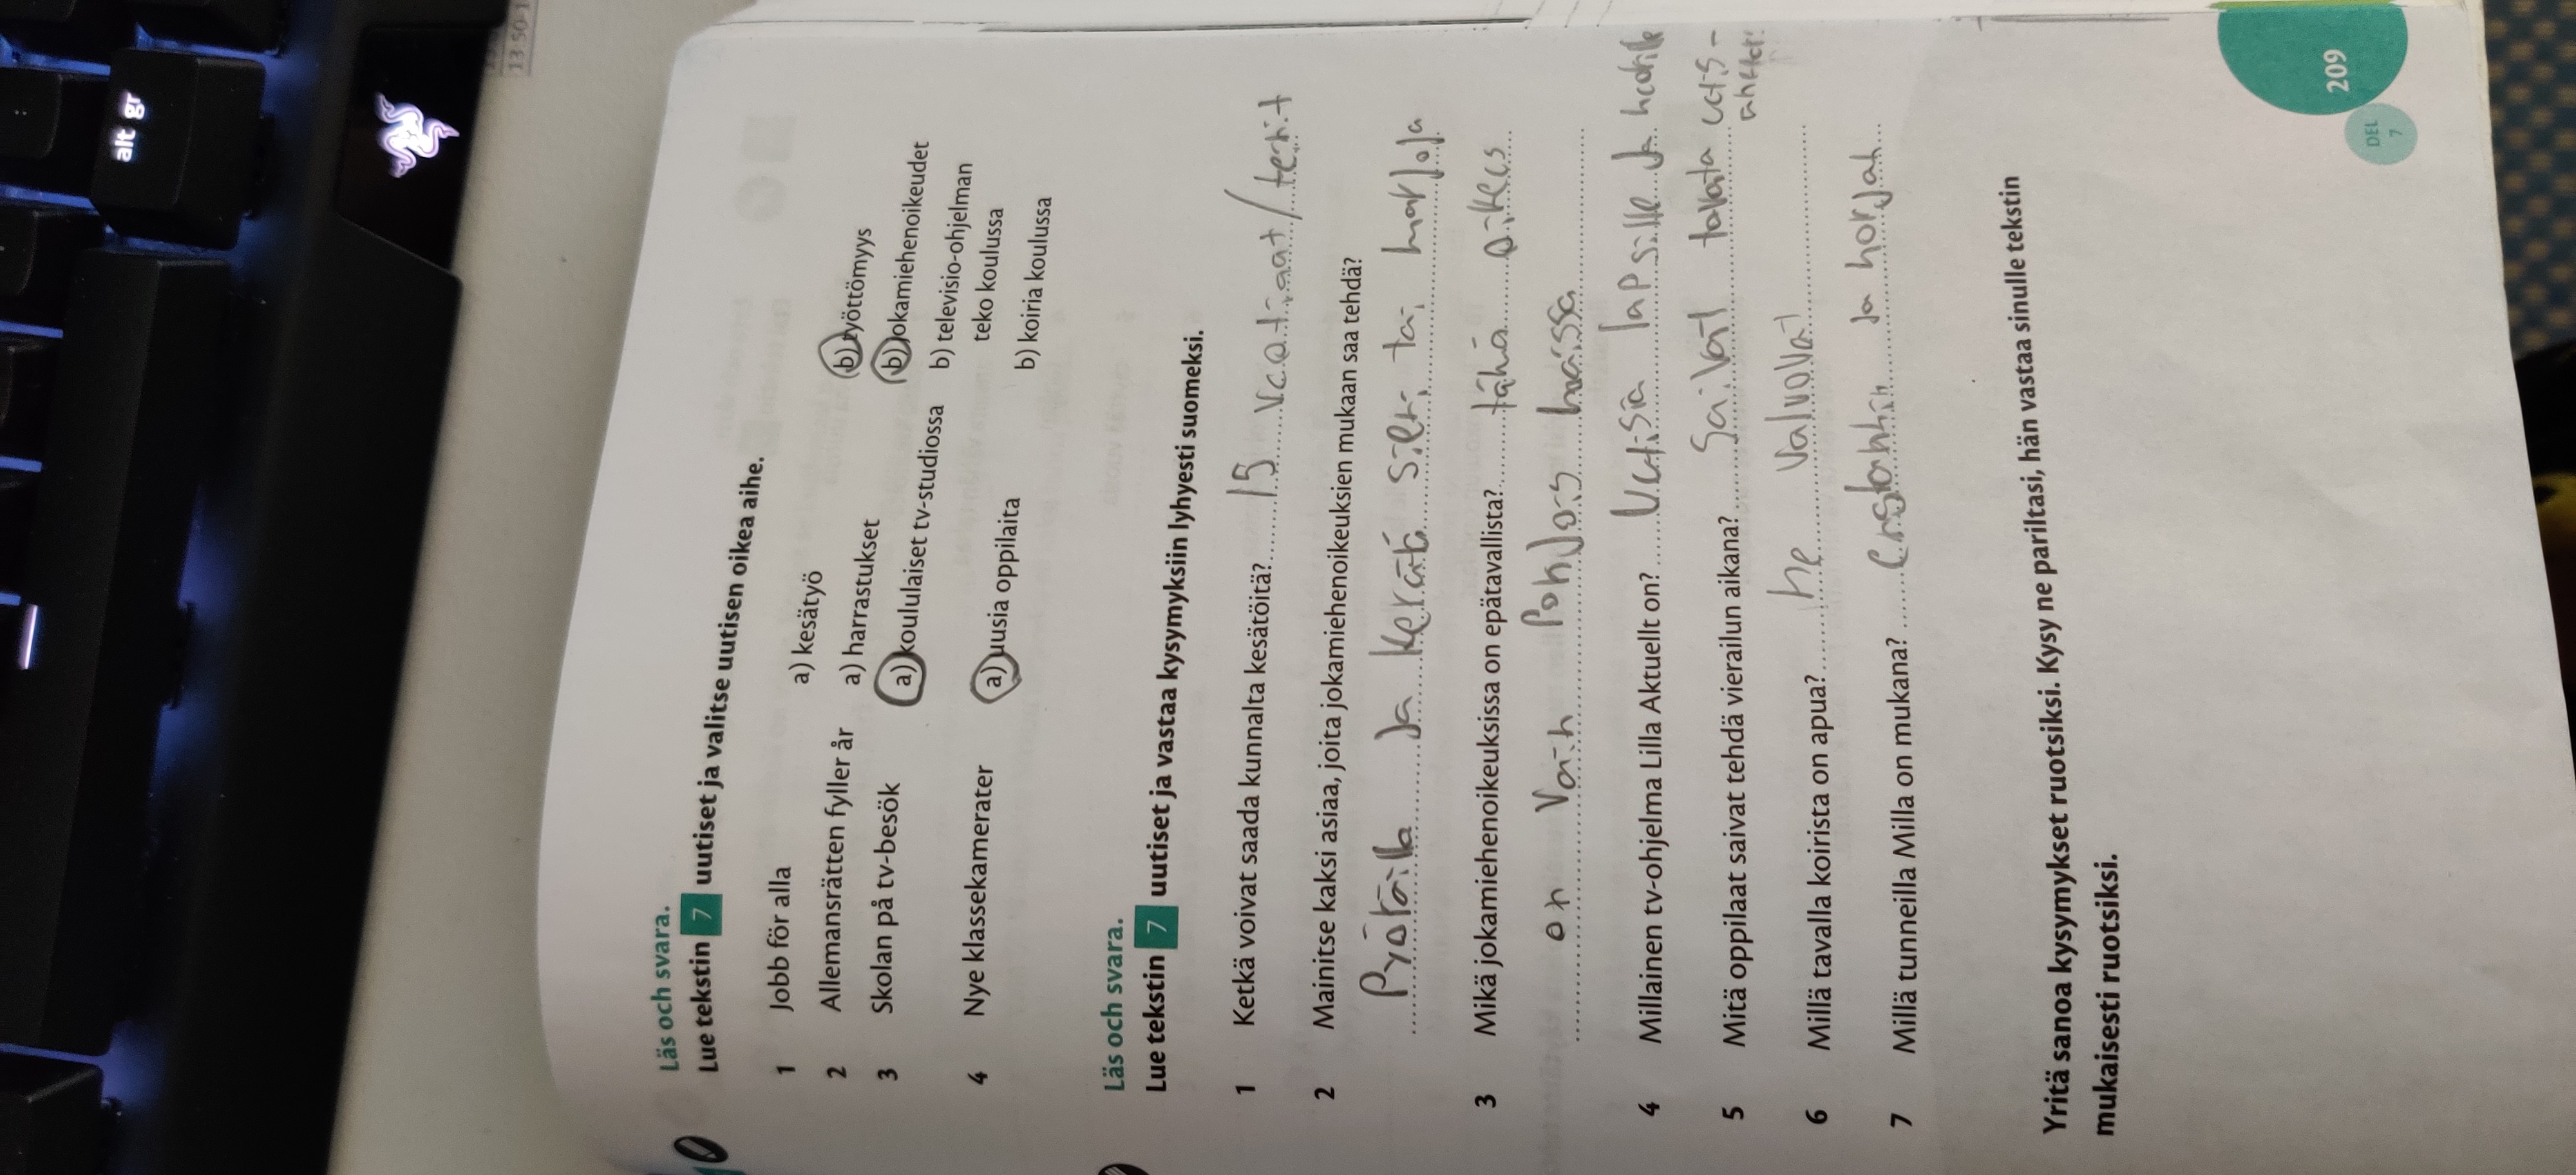 alt gr
13.50-1
Läs och svara.
Lue tekstin 7 uutiset ja valitse uutisen oikea aihe.
1 Jobb för alla a) kesätyö b) työttömyys
2 Allemansrätten fyller år a) harrastukset b) jokamiehenoikeudet
3 Skolan på tv-besök a) koululaiset tv-studiossa b) televisio-ohjelman
teko koulussa
4 Nye klassekamerater a) uusia oppilaita b) koiria koulussa
Läs och svara.
Lue tekstin 7 uutiset ja vastaa kysymyksiin lyhyesti suomeksi.
1 Ketkä voivat saada kunnalta kesätöitä? 15 vuotiaat/
2 Mainitse kaksi asiaa, joita jokamiehenoikeuksien mukaan saa tehdä?
Pyöräillä ja kerätä sieni tai marjoja
3 Mikä jokamiehenoikeuksissa on epätavallista? tähä oikeus
on vain Pohjois maissa
4 Millainen tv-ohjelma Lilla Aktuellt on? Uutisia lapsille ja
5 Mitä oppilaat saivat tehdä vierailun aikana? Saivat tavata uutis-
6 Millä tavalla koirista on apua? he valvovat
7 Millä tunneilla Milla on mukana? ja norjan
Yritä sanoa kysymykset ruotsiksi. Kysy ne pariltasi, hän vastaa sinulle tekstin
mukaisesti ruotsiksi.
DEL
7
209